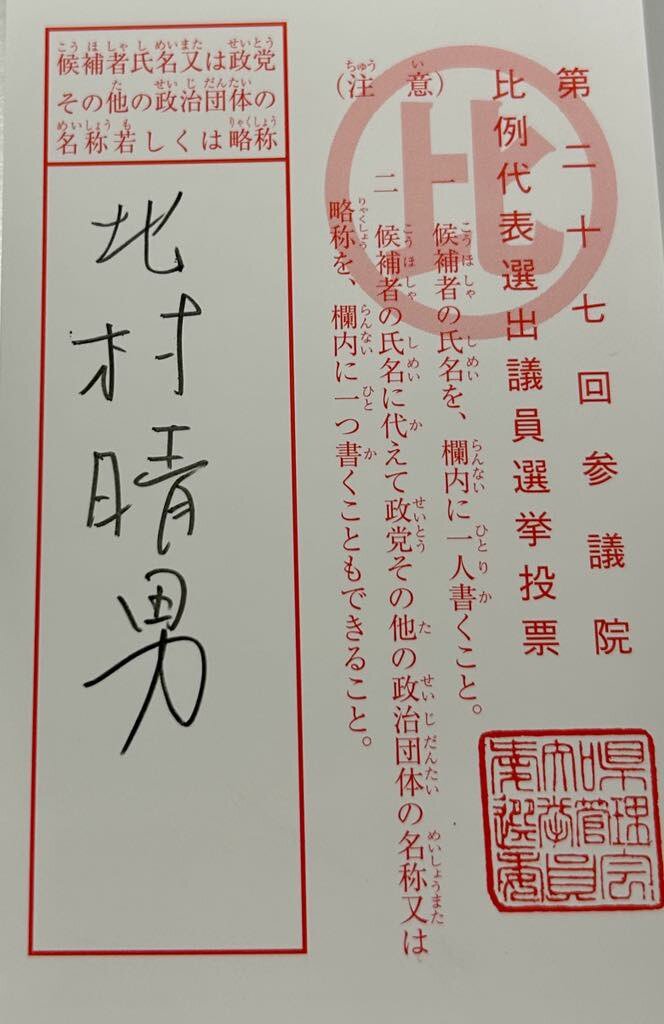 第二十七回参議院
比例代表選出議員選挙投票
比
(注意)
一 候補者の氏名を、欄内に一人書くこと。
二 候補者の氏名に代えて政党その他の政治団体の名称又は
略称を、欄内に一つ書くこともできること。
候補者氏名又は政党
その他の政治団体の
名称若しくは略称
北村晴男
選挙管理
委員会